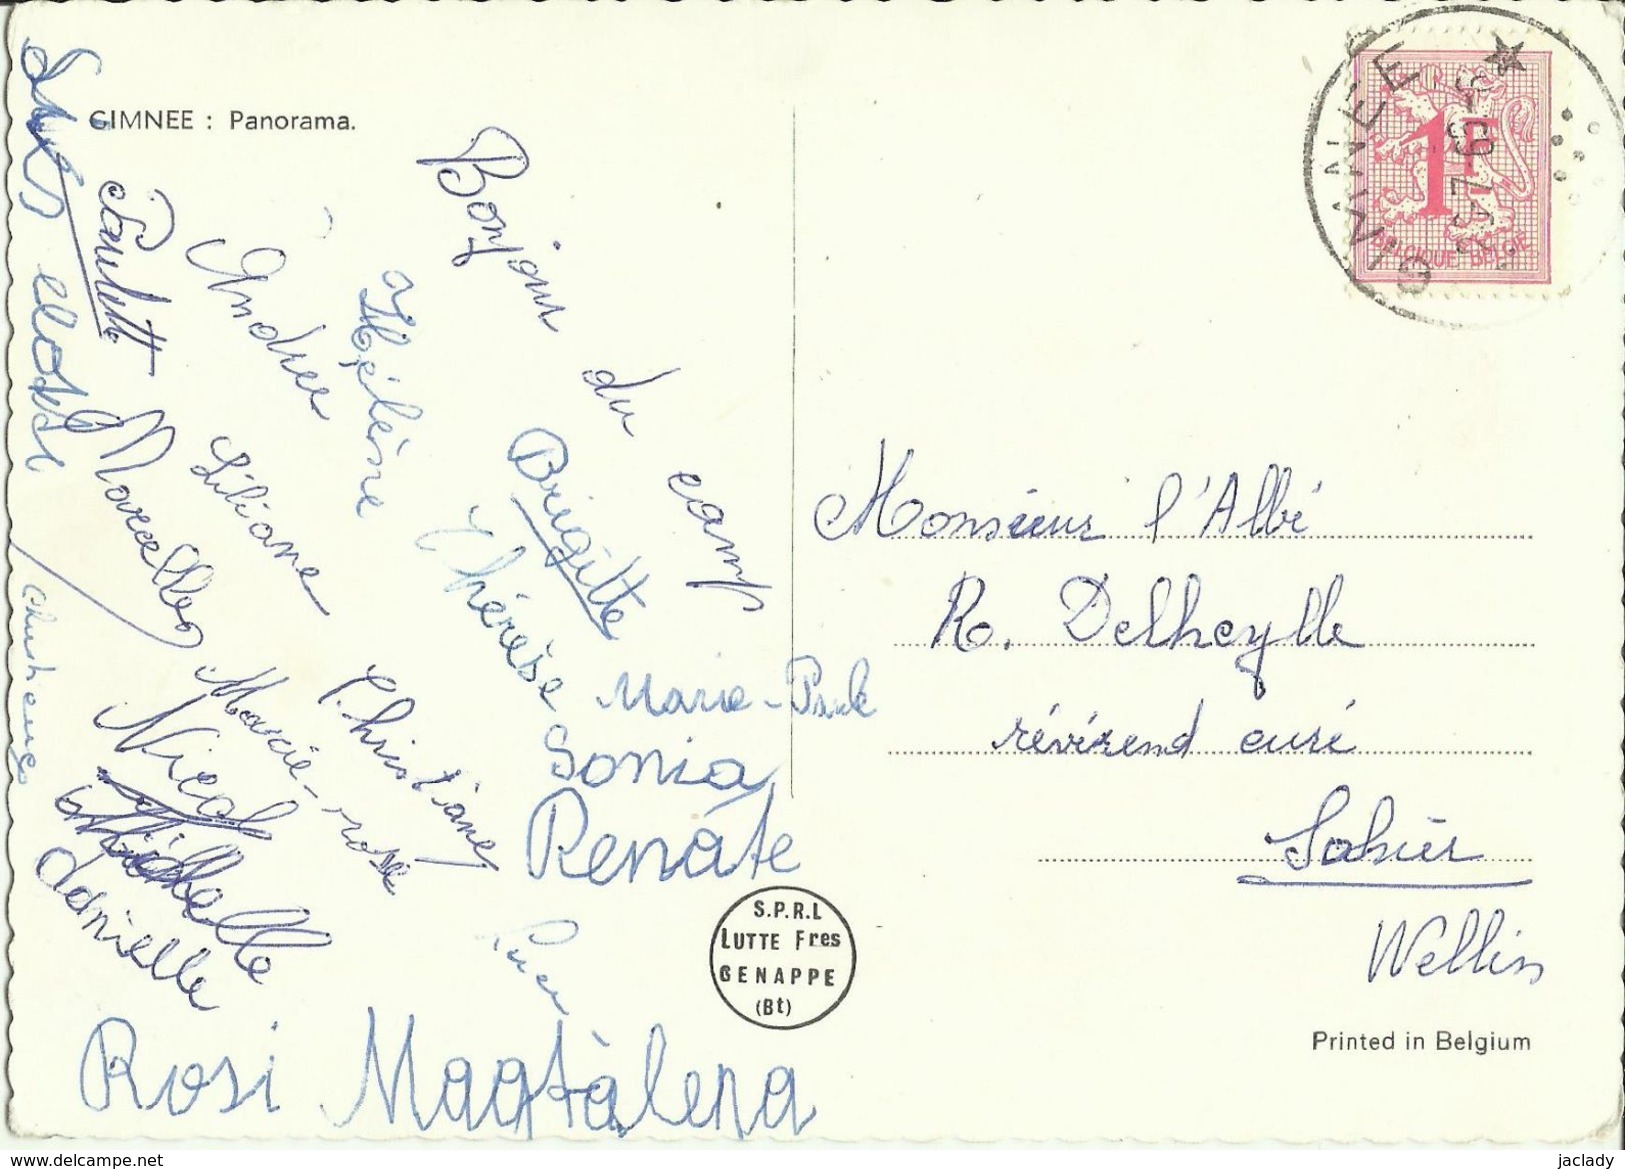 GIMNEE : Panorama.
Bonjour du camp
Paulette
Andrée
Hélène
Brigitte
Thérèse
Liliane
Marcelle
Marie-Paule
Sonia
Renate
Christiane
Marie-rose
Nicole
Danielle
Rosi Magdalena
S.P.R.L
LUTTE Fres
GENAPPE
(Bt)
GIMNEE
1F
BELGIQUE BELGIE
Monsieur l'Abbé
R. Delheylle
révérend curé
Sohier
Wellin
Printed in Belgium
www.delcampe.net
jaclady